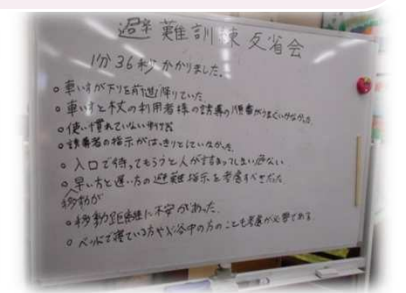 避難訓練反省会
1分36秒かかりました。
○車いすが下りを前進で降りていた
○車いすと杖の利用者様の誘導の順番がうまくいかなかった
○使い慣れていない
○誘導者の指示がはっきりとしていなかった。
○入口で待ってもらうと人が詰まってしまい危ない
○早い方と遅い方の避難指示を考慮すべきだった
移動が
○移動距離に不安があった。
○ベッドで寝ている方や入浴中の方のことも考慮が必要である